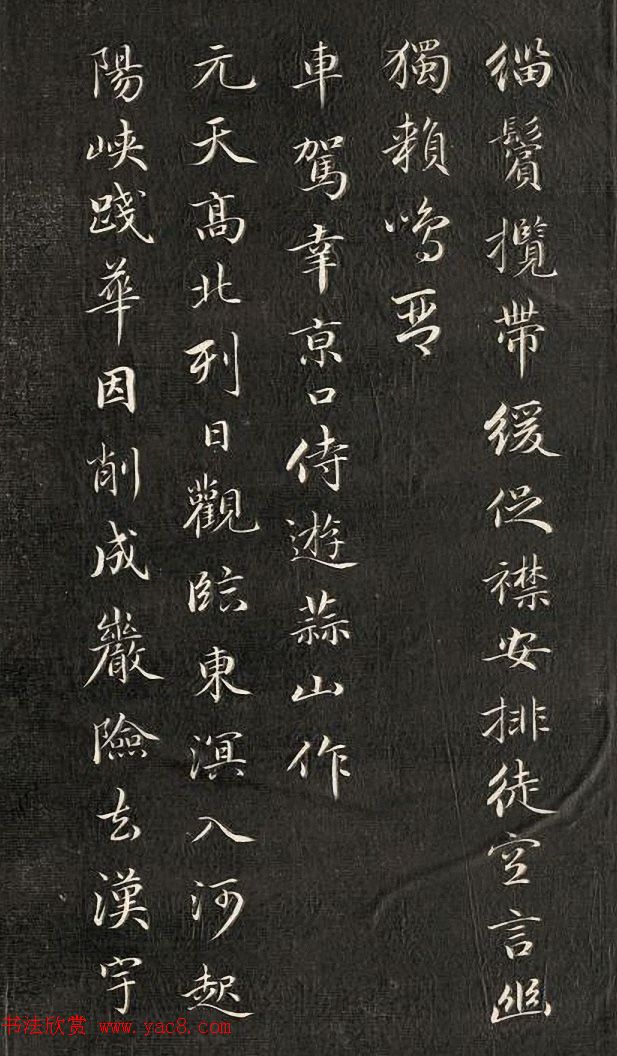 緇鬢攬帶緩促襟安排徒空言幽
獨賴鳴琴
車駕幸京口侍遊蒜山作
元天高北列日觀臨東溟入河起
陽峽踐華因削成巖險去漢宇
书法欣赏 www.yac8.com